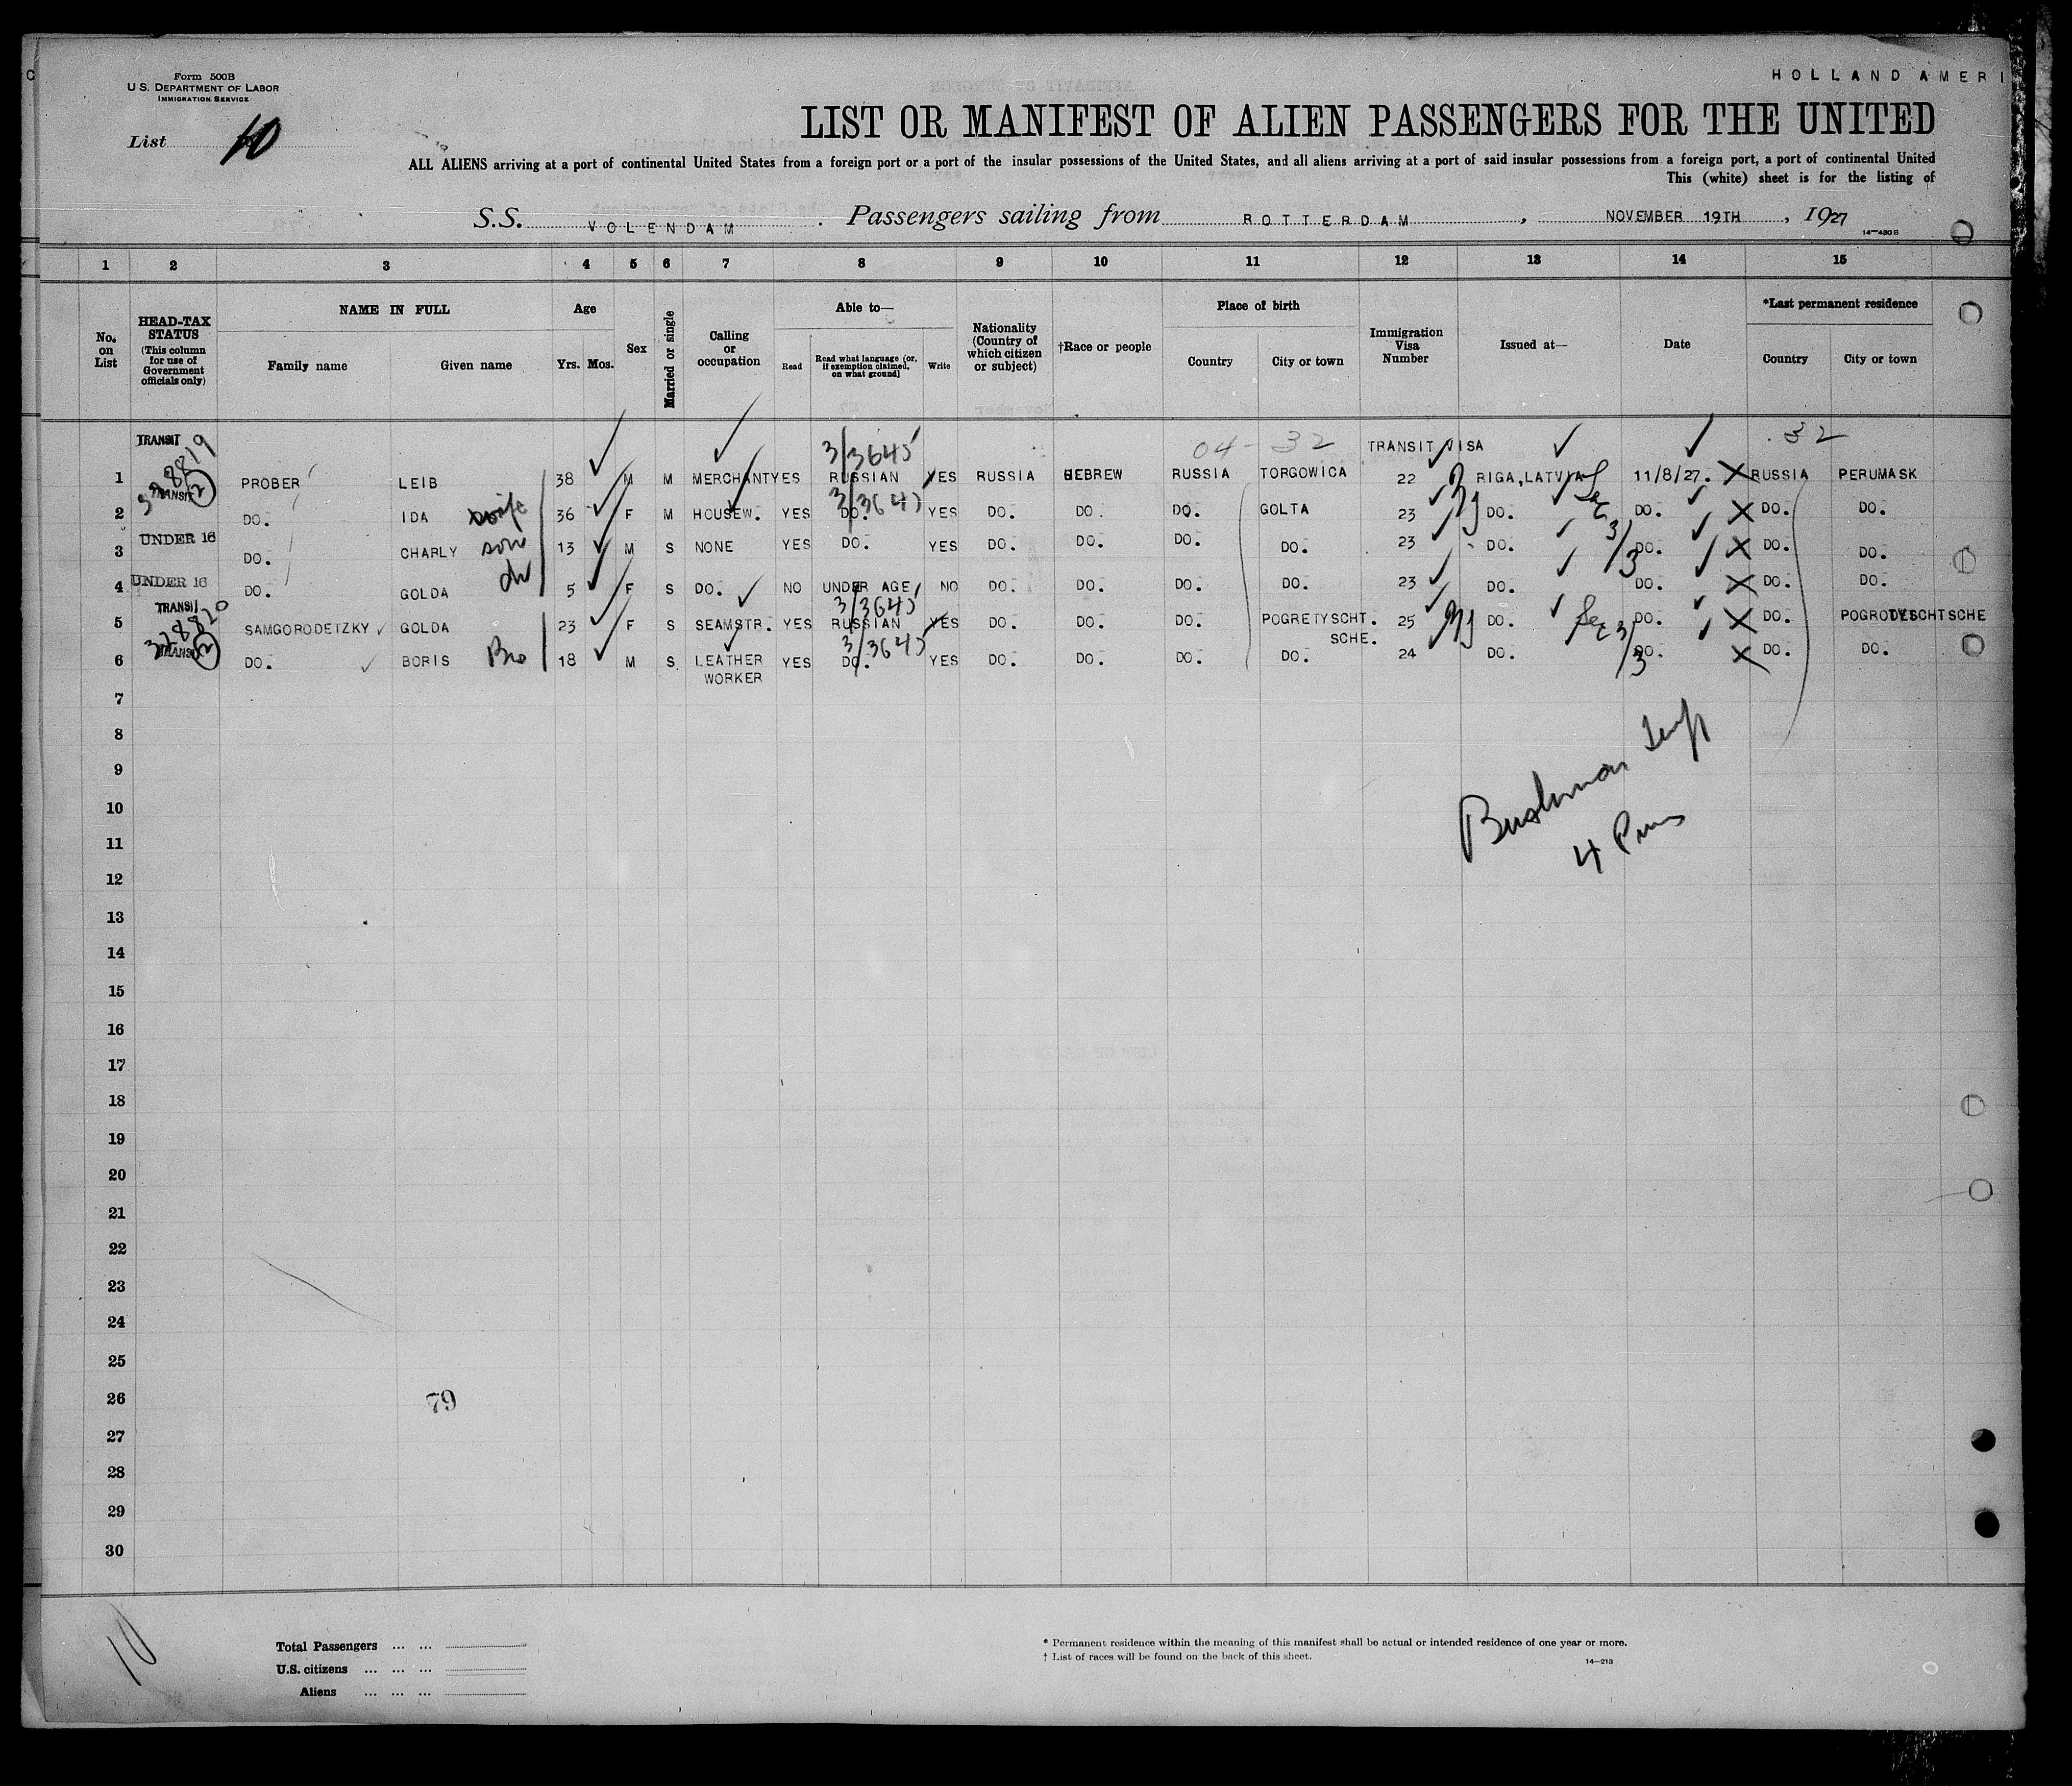 Form 500B
U.S. DEPARTMENT OF LABOR
IMMIGRATION SERVICE
HOLLAND AMERI
List 10
LIST OR MANIFEST OF ALIEN PASSENGERS FOR THE UNITED
ALL ALIENS arriving at a port of continental United States from a foreign port or a port of the insular possessions of the United States, and all aliens arriving at a port of said insular possessions from a foreign port, a port of continental United
This (white) sheet is for the listing of
S.S. VOLENDAM. Passengers sailing from ROTTERDAM, NOVEMBER 19TH, 1927
14—430 B
1 2 3 4 5 6 7 8 9 10 11 12 13 14 15
No. on List
HEAD-TAX STATUS (This column for use of Government officials only)
NAME IN FULL
Family name Given name
Age
Yrs. Mos.
Sex
Married or single
Calling or occupation
Able to—
Read
Read what language (or, if exemption claimed, on what ground)
Write
Nationality (Country of which citizen or subject)
†Race or people
Place of birth
Country City or town
Immigration Visa Number
Issued at—
Date
*Last permanent residence
Country City or town
TRANSIT 3/3645 04-32 TRANSIT VISA 32
1 328819 PROBER LEIB 38 M M MERCHANT YES RUSSIAN YES RUSSIA HEBREW RUSSIA TORGOWICA 22 RIGA, LATVIA 11/8/27. RUSSIA PERUMASK
TRANSIT 2 3/3645
2 DO. IDA wife 36 F M HOUSEW. YES DO. YES DO. DO. DO. GOLTA 23 DO. DO. DO. DO.
3 UNDER 16 DO. CHARLY son 13 M S NONE YES DO. YES DO. DO. DO. DO. 23 DO. DO. DO. DO.
4 UNDER 16 DO. GOLDA ch 5 F S DO. NO UNDER AGE NO DO. DO. DO. DO. 23 DO. DO. DO. DO.
TRANSIT 3/3645
5 328820 SAMGORODETZKY GOLDA 23 F S SEAMSTR. YES RUSSIAN YES DO. DO. DO. POGRETYSCHT. 25 DO. DO. DO.
SCHE.
TRANSIT 2 3/3645
6 DO. BORIS Bro 18 M S. LEATHER YES DO. YES DO. DO. DO. DO. 24 DO. DO. DO. DO.
WORKER
7
8
9
10
11
12
13
14
15
16
17
18
19
20
21
22
23
24
25
26 79
27
28
29
30
10
Total Passengers
U.S. citizens
Aliens
* Permanent residence within the meaning of this manifest shall be actual or intended residence of one year or more.
† List of races will be found on the back of this sheet.
14—213